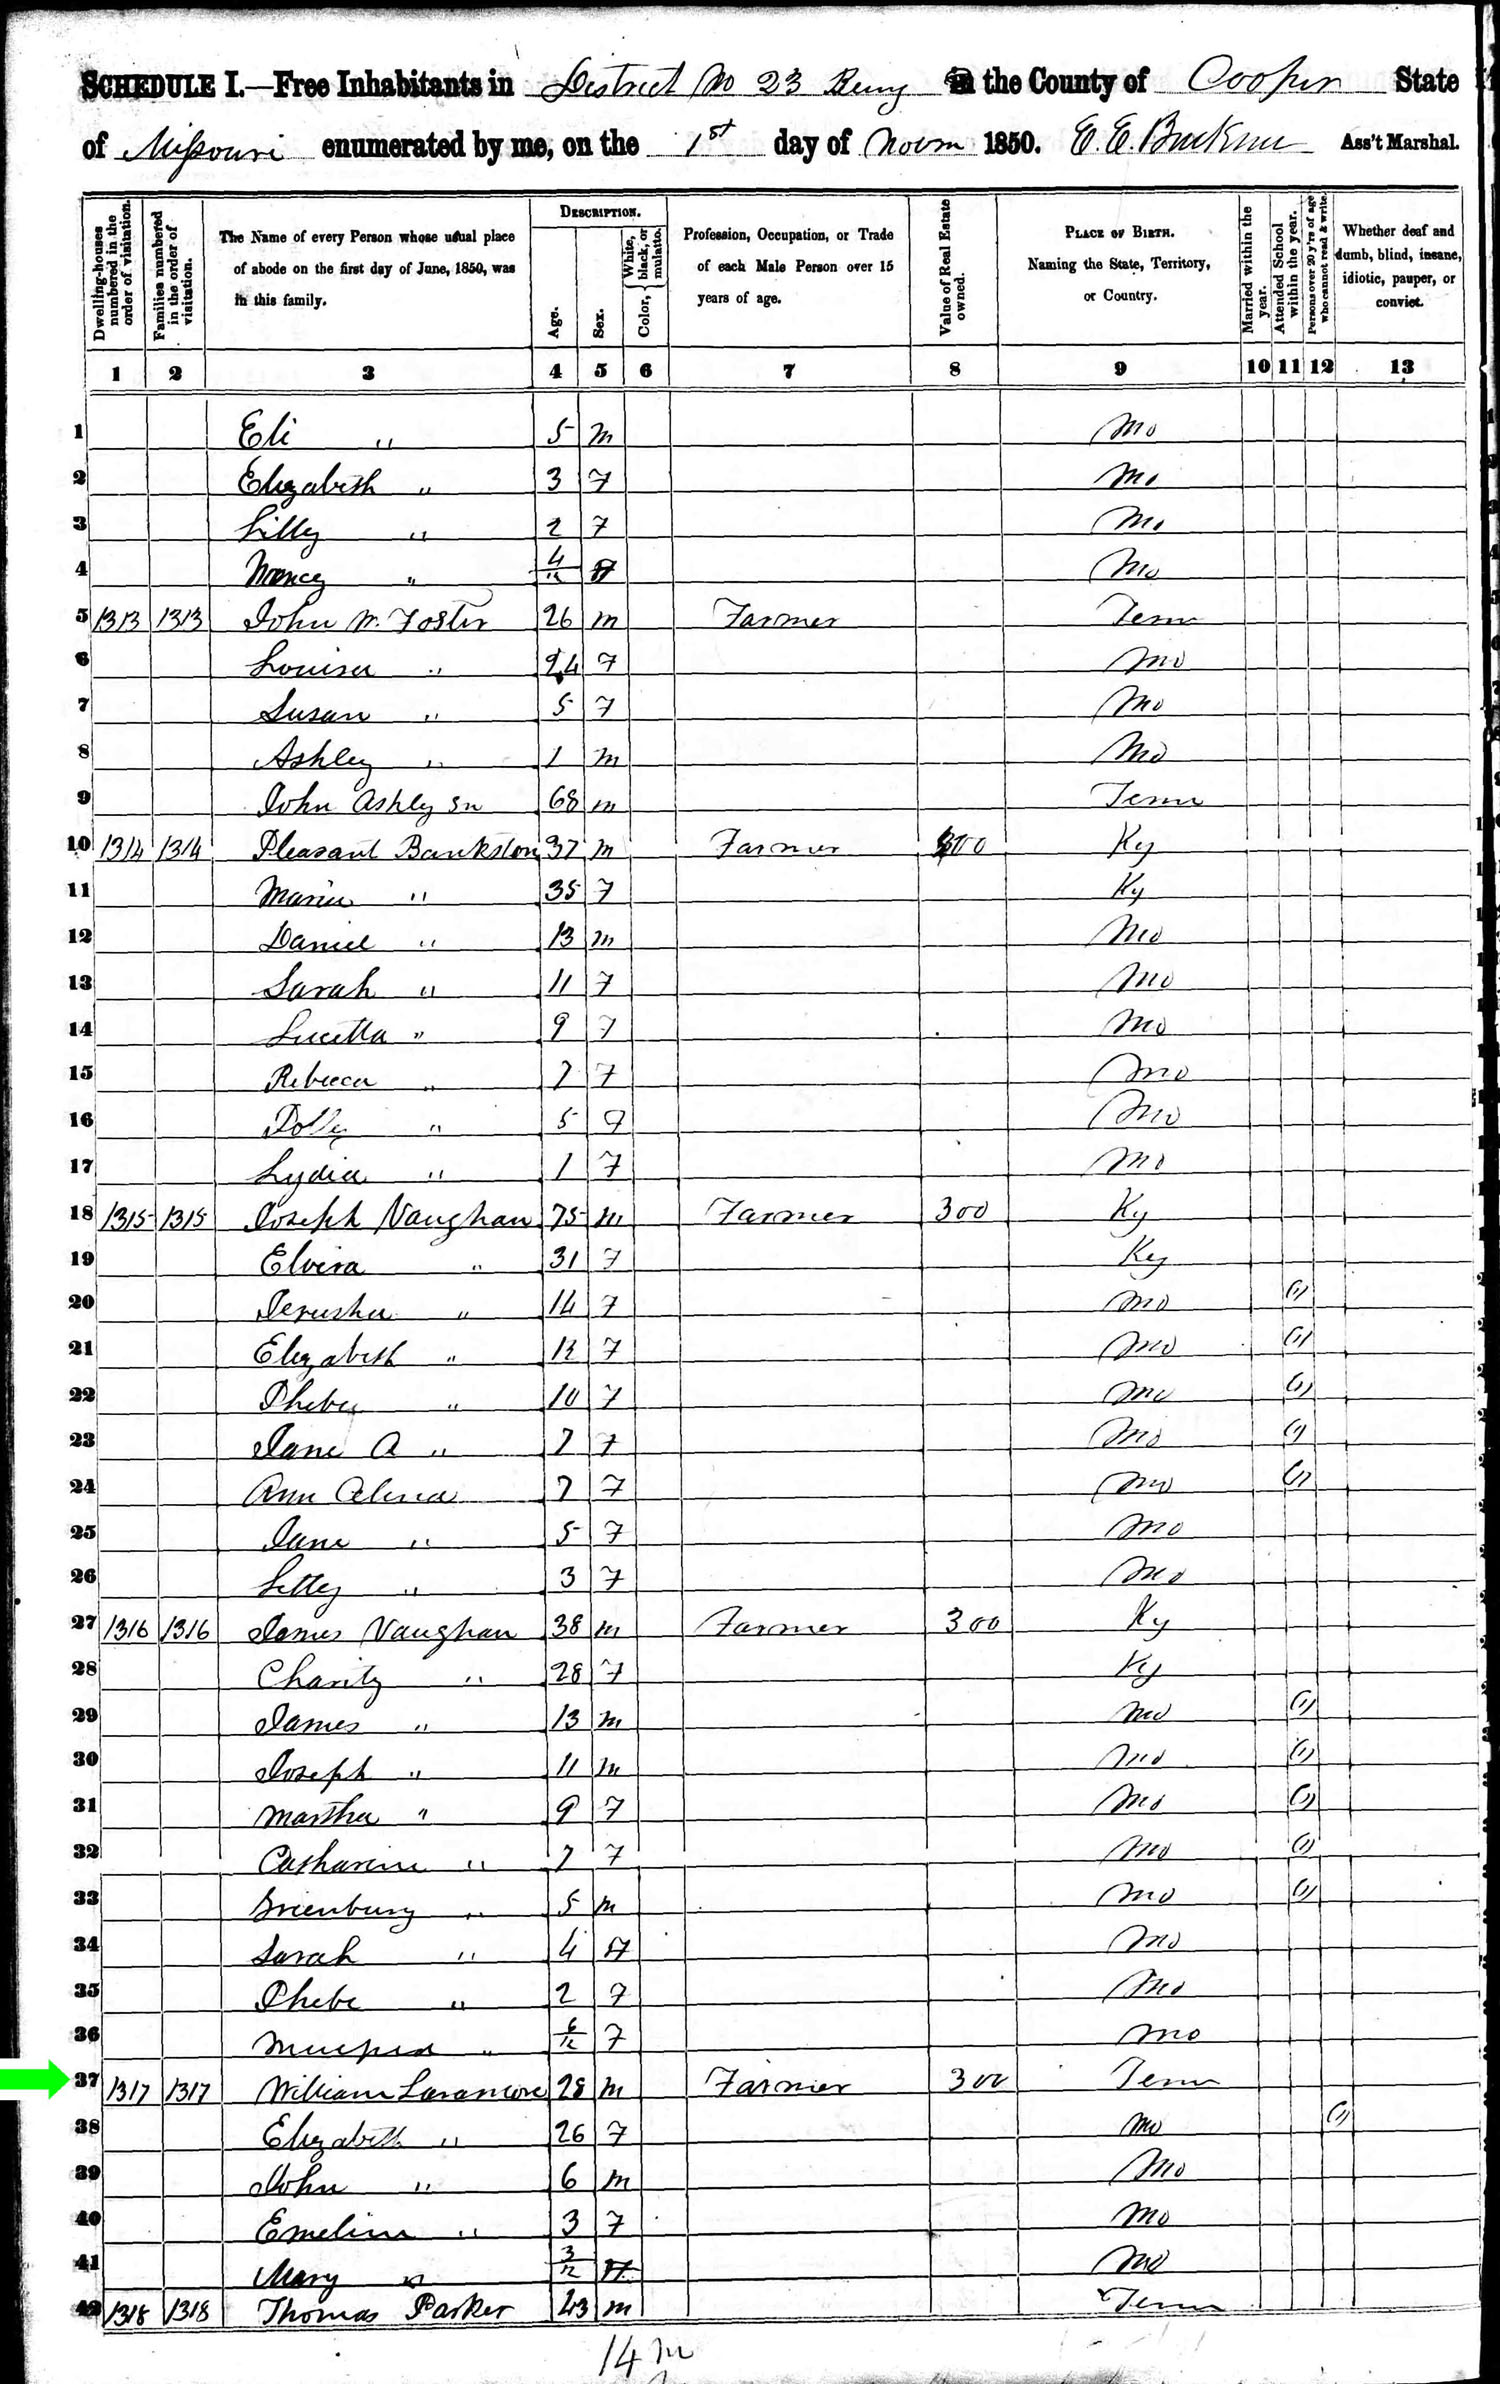 SCHEDULE I.—Free Inhabitants in District No 23 in the County of Cooper State
of Missouri enumerated by me, on the 1st day of Novem 1850. E. E. Buckner Ass't Marshal.
Dwelling-houses numbered in the order of visitation.
Families numbered in the order of visitation.
The Name of every Person whose usual place of abode on the first day of June, 1850, was in this family.
DESCRIPTION.
Age.
Sex.
Color, White, black, or mulatto.
Profession, Occupation, or Trade of each Male Person over 15 years of age.
Value of Real Estate owned.
PLACE OF BIRTH. Naming the State, Territory, or Country.
Married within the year.
Attended School within the year.
Persons over 20 y'rs of age who cannot read & write.
Whether deaf and dumb, blind, insane, idiotic, pauper, or convict.
1 2 3 4 5 6 7 8 9 10 11 12 13
1 Eli " 5 m Mo
2 Elizabeth " 3 F Mo
3 Litty " 2 F Mo
4 Nancy " 4/12 F Mo
5 1313 1313 John W. Foster 26 m Farmer Tenn
6 Louisa " 24 F Mo
7 Susan " 5 F Mo
8 Ashley " 1 m Mo
9 John Ashley Sn 68 m Tenn
10 1314 1314 Pleasant Bankston 37 m Farmer 300 Ky
11 Maria " 35 F Ky
12 Daniel " 13 m Mo
13 Sarah " 11 F Mo
14 Lucetta " 9 F Mo
15 Rebecca " 7 F Mo
16 Polly " 5 F Mo
17 Lydia " 1 F Mo
18 1315 1315 Joseph Vaughan 75 m Farmer 300 Ky
19 Elvira " 31 F Ky
20 Jerusha " 14 F Mo (1)
21 Elizabeth " 12 F Mo (1)
22 Phebe " 10 F Mo (1)
23 Jane A " 7 F Mo (1)
24 Ann 7 F Mo (1)
25 Jane " 5 F Mo
26 Letty " 3 F Mo
27 1316 1316 James Vaughan 38 m Farmer 300 Ky
28 Charity " 28 F Ky
29 James " 13 m Mo (1)
30 Joseph " 11 m Mo (1)
31 Martha " 9 F Mo (1)
32 Catharine " 7 F Mo (1)
33 Greenbury " 5 m Mo (1)
34 Sarah " 4 F Mo
35 Phebe " 2 F Mo
36 " 6/12 F Mo
37 1317 1317 William Laramore 28 m Farmer 300 Tenn
38 Elizabeth " 26 F Mo (1)
39 John " 6 m Mo
40 Emeline " 3 F Mo
41 Mary " 3/12 F Mo
42 1318 1318 Thomas Parker 43 m Tenn
14 m